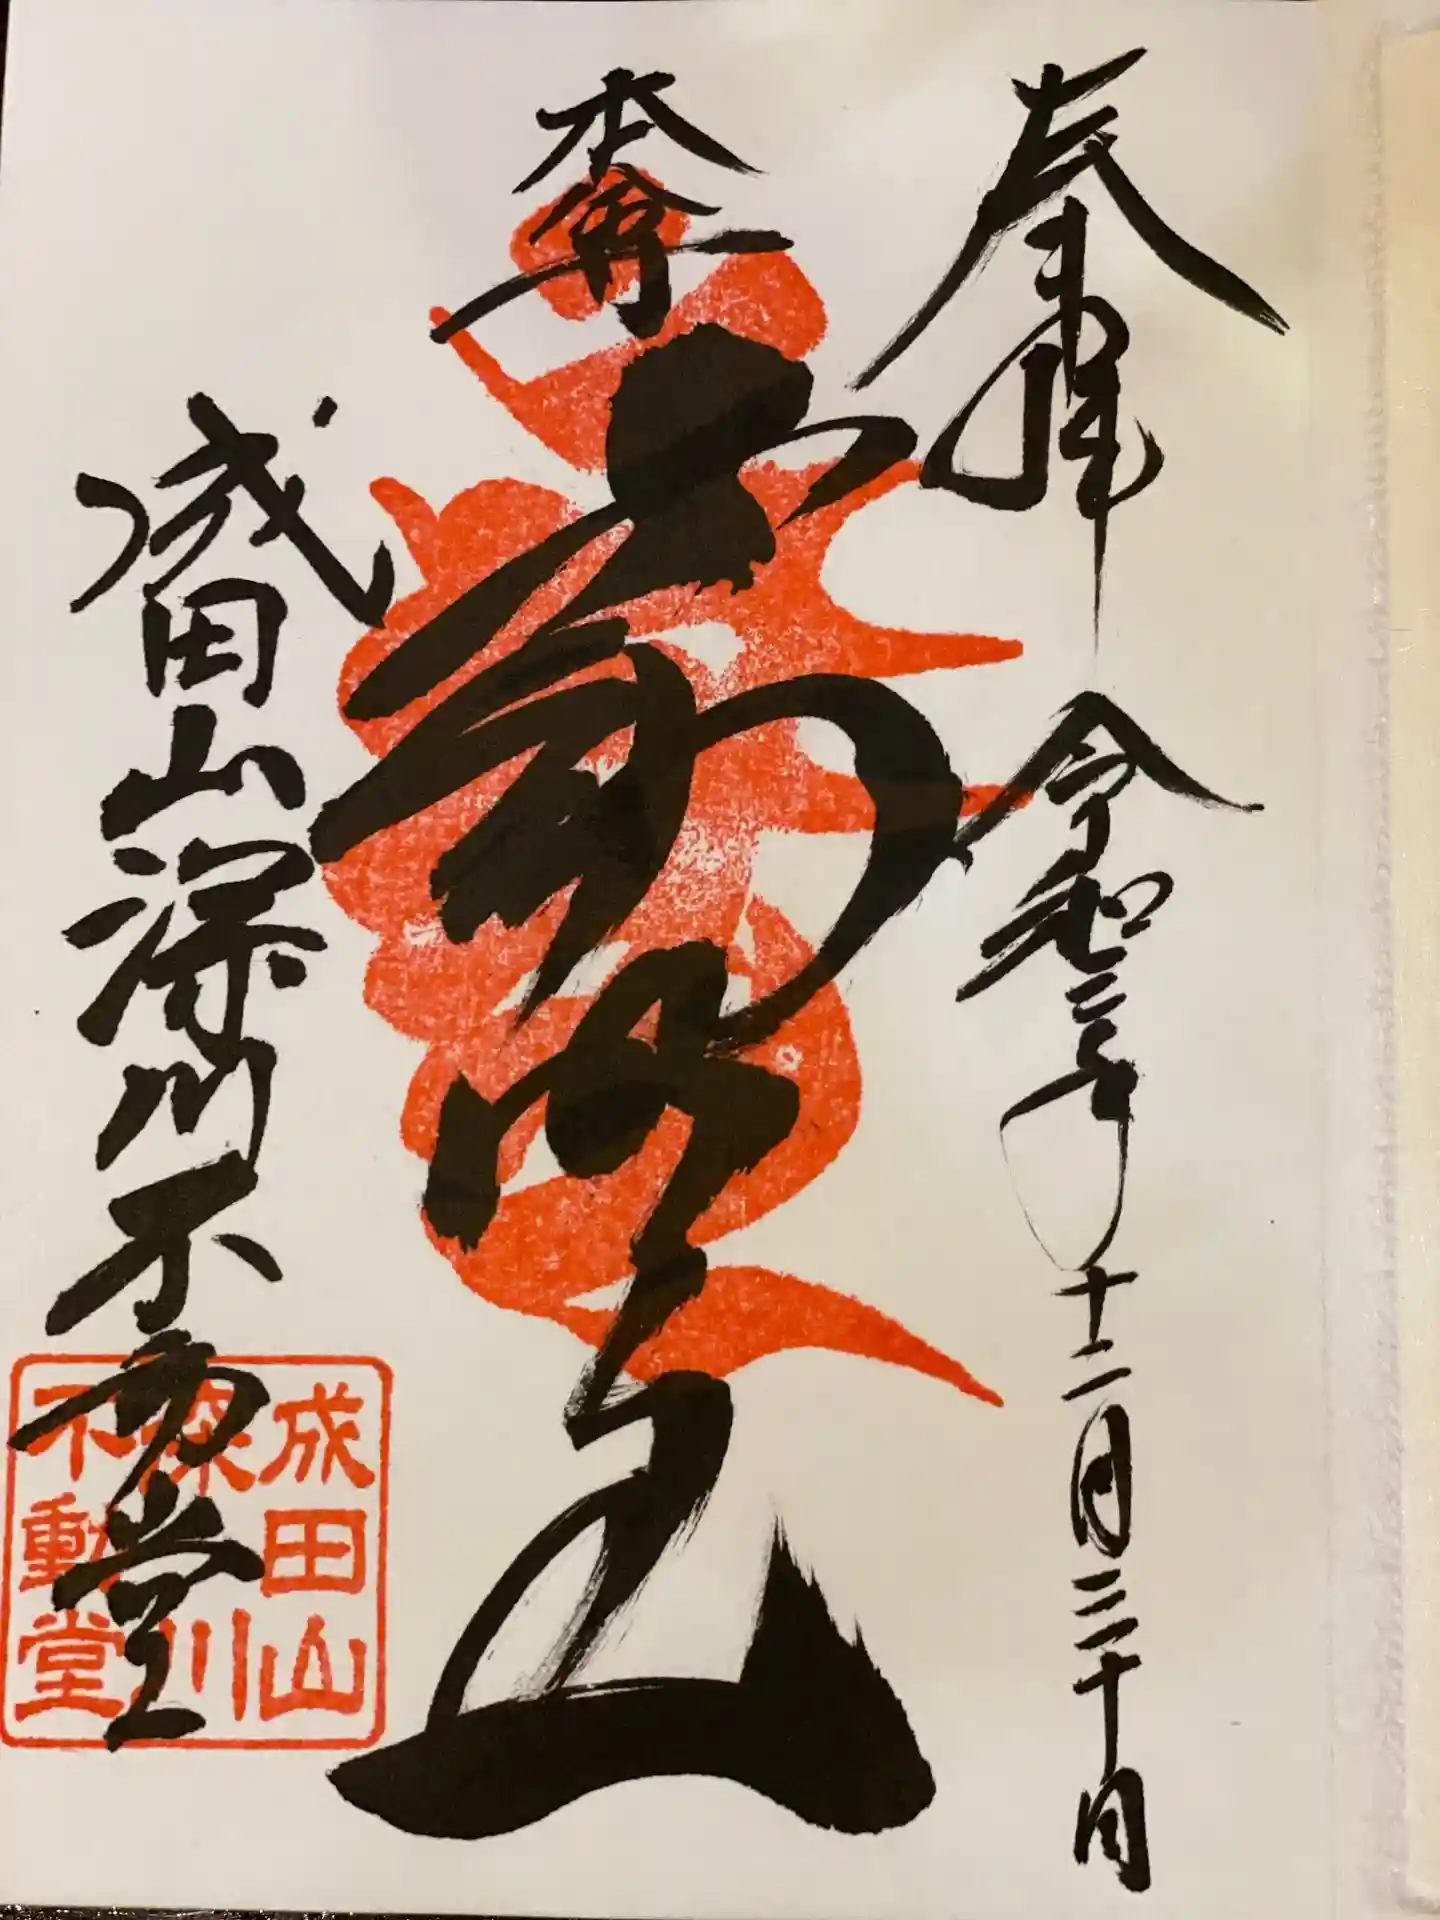 奉拝 令和三年十二月三十日
本尊
不動明王
成田山深川不動堂
成田山
深川
不動堂